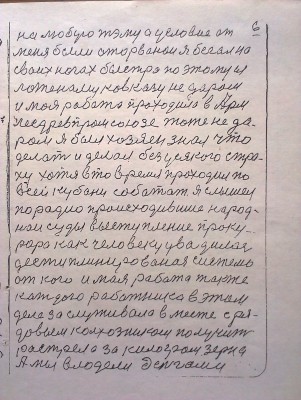 6
на любую тэму а условие от
меня были оторваной я бегал на
своих ногах быстро по этому и
по кавказу не даром
и моя работа проходила в Арм
лесдревпромсоюзе тоже не да-
ром я был хозяен знал что
делать и делал без усякого стра-
ху хотя в то время проходил по
всей кубани саботаж я слышел
по радио происходившие народ-
наи суды выеступление проку-
рора как человеку
дестиплинированая система
от кого и моя работа также
каждого работника в этом
деле заслуживала в месте с ря-
довым колхозником получит
растрела за килограм зерна
А мы владели денгами